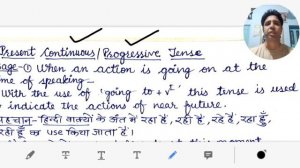 Present Continuous/ Progressive Tense
age-① When an action is going on at the
me of speaking-
With the use of 'going to + v¹' this tense is used
indicate the actions of near future.
पहचान- हिन्दी वाक्यों के अंत में रहा है, रही है, रहे हैं, रहा हूँ,
रही हूँ का use किया जाता है।